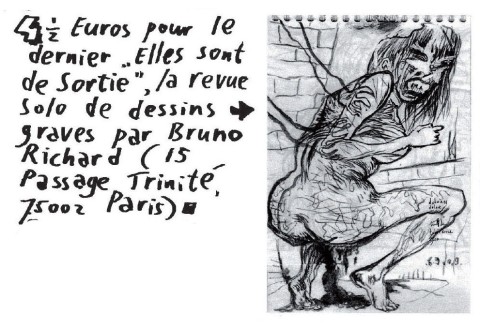 4½ Euros pour le
dernier „Elles sont
de Sortie", la revue
solo de dessins ➔
graves par Bruno
Richard (15
Passage Trinité,
75002 Paris) ■